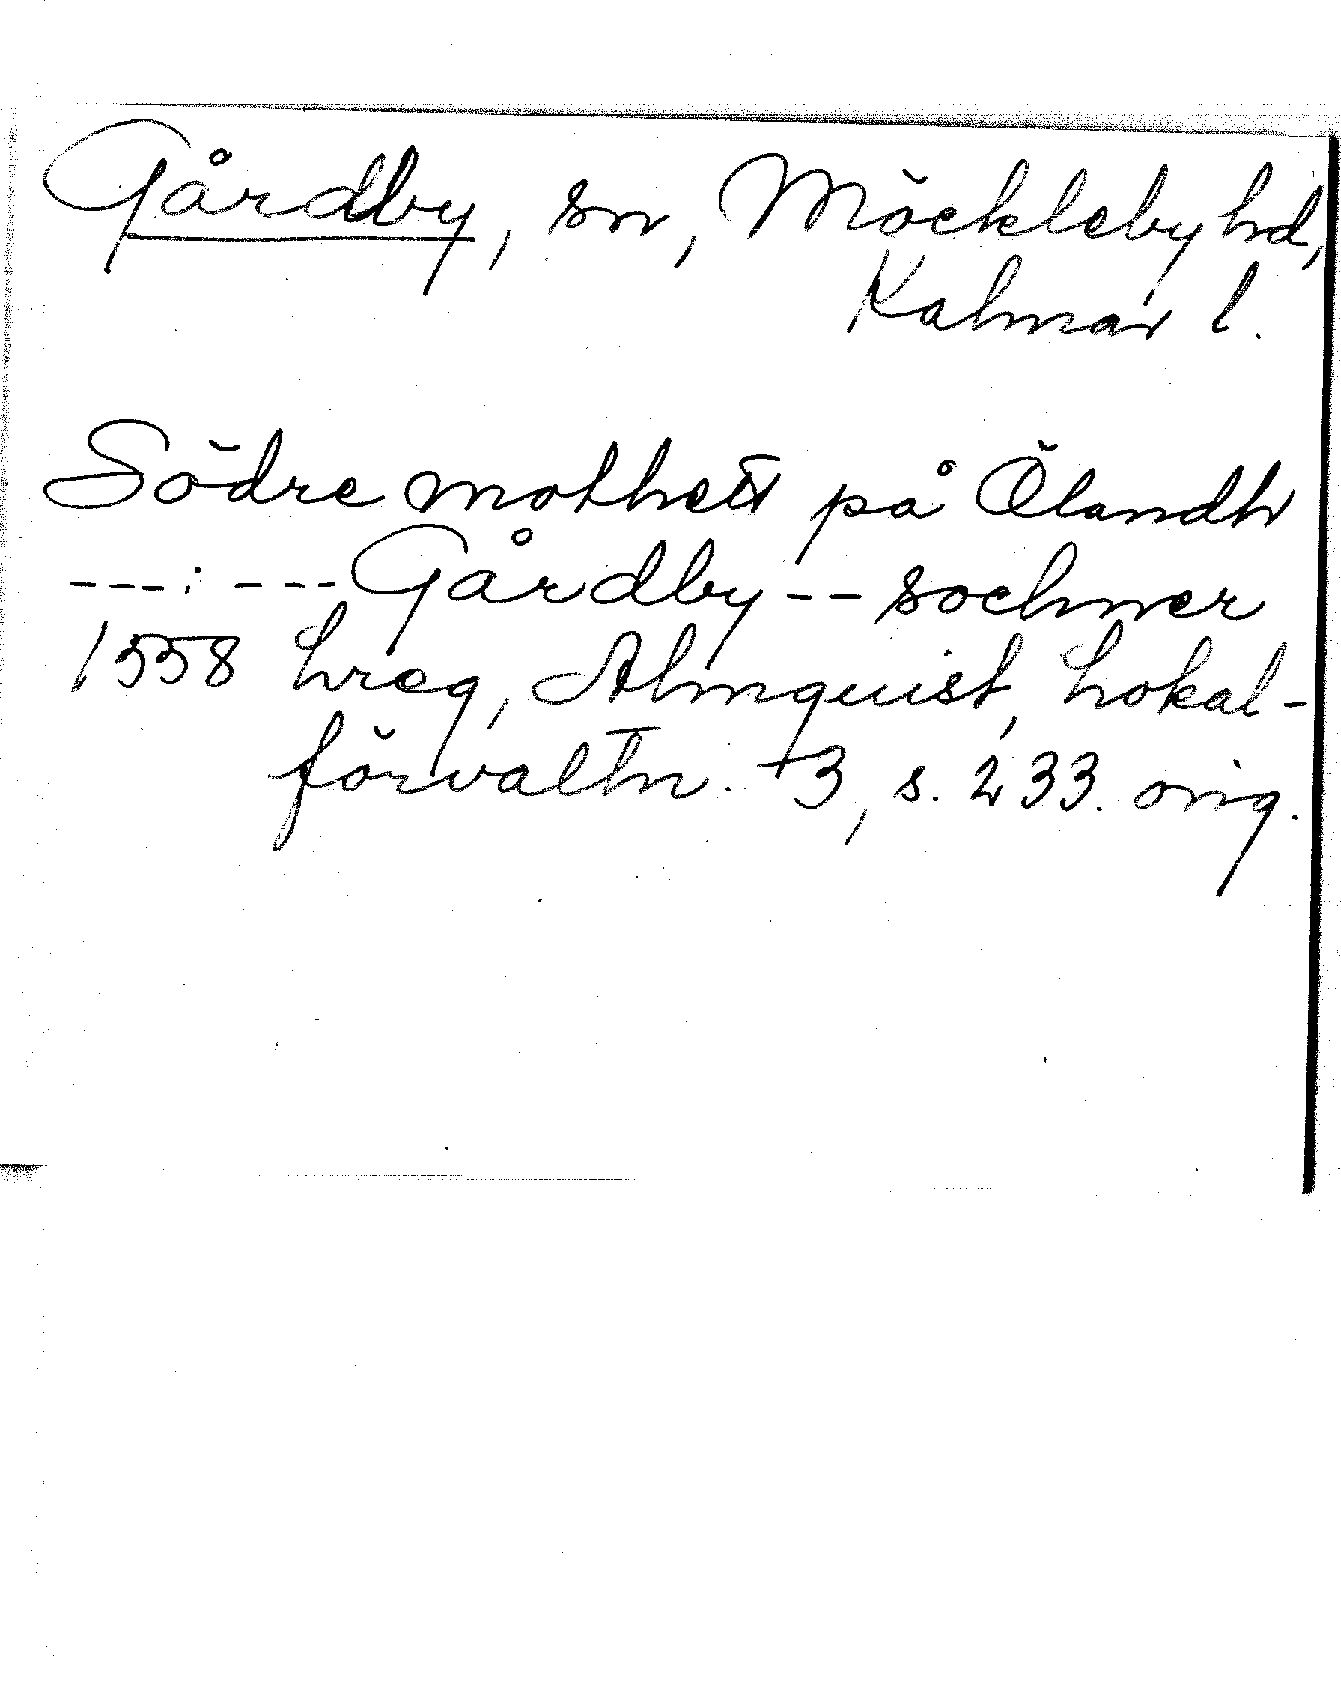 Gårdby, sn, Möckleby hd,
Kalmar l.
Södre mothett på Ölandh
---:---Gårdby--sochner
1558 Lreg, Almquist, Lokal-
förvaltn. +3, s. 233. orig.